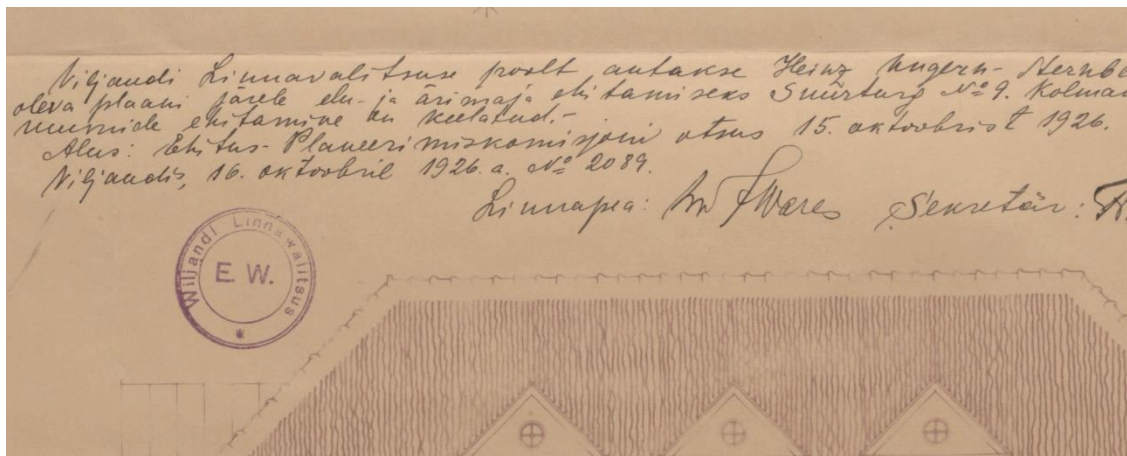 Viljandi Linnavalitsuse poolt antakse Heinz Ungern-Sternbe
oleva plaani järele elu- ja ärimaja ehitamiseks Suurturg № 9. Kolman
ruumide ehitamine on keelatud.-
Alus: Ehitus-Planeerimiskomisjoni otsus 15. oktoobrist 1926.
Viljandis, 16. oktoobril 1926. a. № 2089.
Linnapea: Wares Sekretär:
Wiljandi Linnawalitsus
E. W.